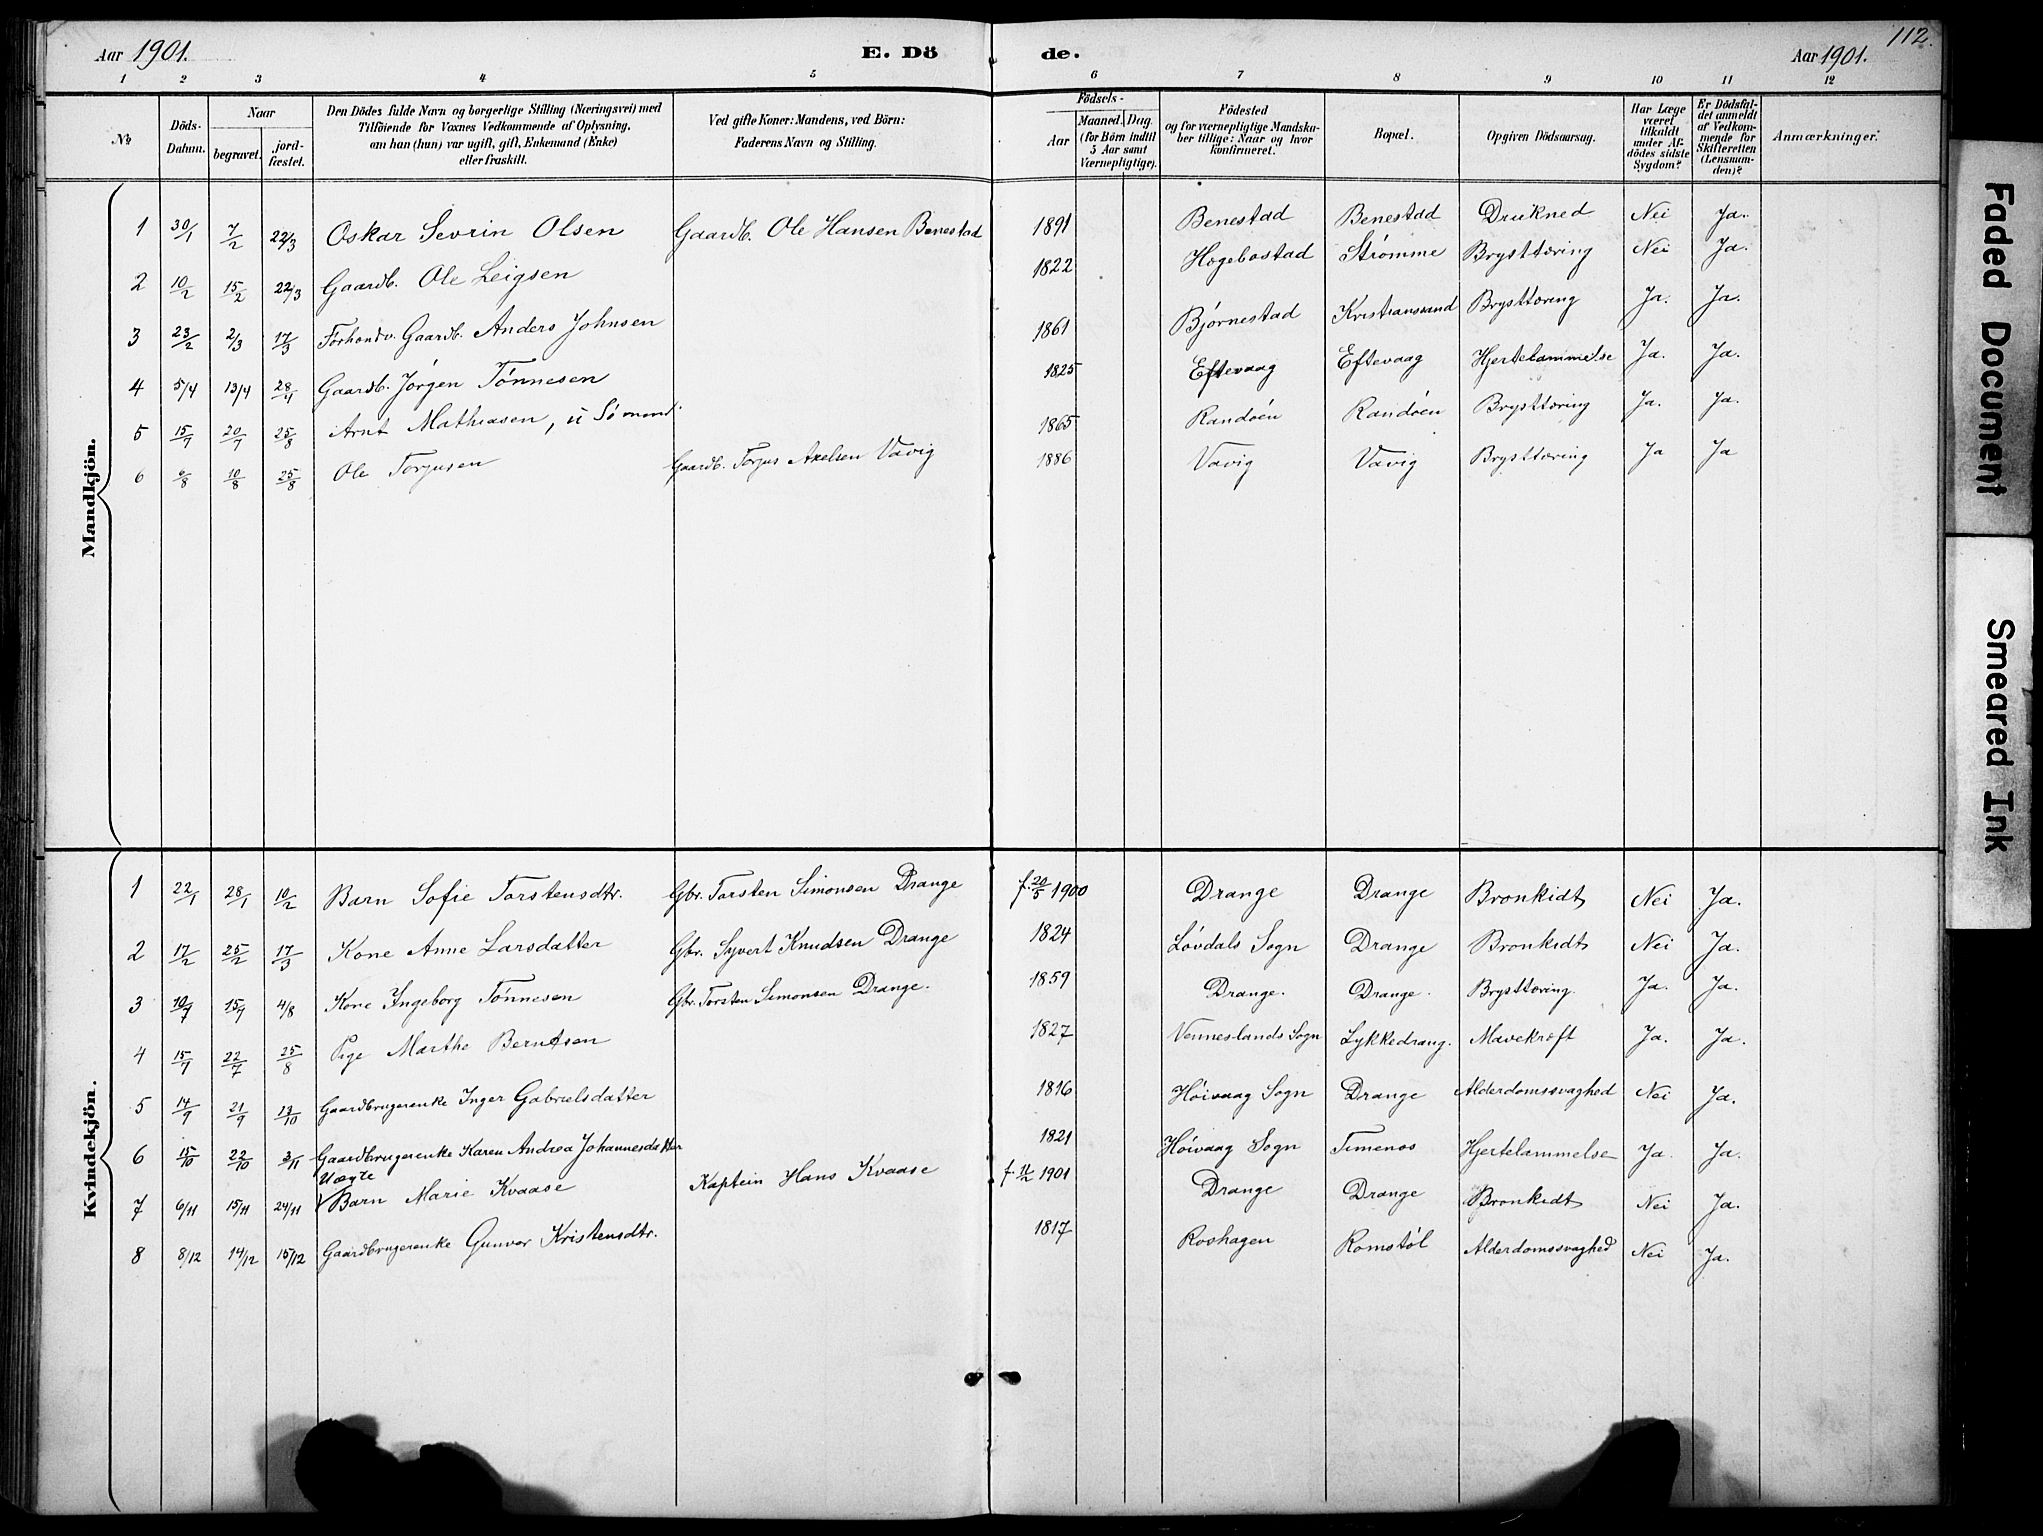 Aar 1901. E. Dö de. Aar 1901. 112.
1 2 3 4 5 6 7 8 9 10 11 12
No. Döds-Datum. Naar begravet. jord-fæstet. Den Dödes fulde Navn og borgerlige Stilling (Næringsvei) med Tilföiende for Voxnes Vedkommende af Oplysning, om han (hun) var ugift, gift, Enkemand (Enke) eller fraskilt. Ved gifte Koner: Mandens, ved Börn: Faderens Navn og Stilling. Födsels- Aar Maaned. Dag. (for Börn indtil 5 Aar samt Værnepligtige). Födested og for værnepligtige Mandskaber tillige: Naar og hvor konfirmeret. Bopæl. Opgiven Dödsaarsag. Har Læge været tilkaldt under Afdödes sidste Sygdom? Er Dödsfaldet anmeldt af Vedkommende for Skifteretten (Lensmanden)? Anmærkninger.
Mandkjön.
1 30/1 7/2 22/3 Oskar Sevrin Olsen Gaardb. Ole Hansen Benestad 1891 Benestad Benestad Drukned Nei Ja.
2 10/2 15/2 22/3 Gaardb. Ole Leigsen 1822 Hægebostad Strømme Brysttæring Nei Ja.
3 23/2 2/3 17/3 Forhondv. Gaardb. Anders Johnsen 1861 Bjørnestad Kristianssand Brysttæring Ja. Ja.
4 5/4 13/4 28/4 Gaardb. Jørgen Tønnesen 1825 Eftevaag Eftevaag Hjertelammelse Ja. Ja.
5 15/7 20/7 25/8 Arnt Mathiasen, u Sømand. 1865 Randøen Randøen Brysttæring Ja. Ja.
6 6/8 10/8 25/8 Ole Torjusen Gaardb. Torjus Axelsen Vavig 1886 Vavig Vavig Brysttæring Ja Ja
Kvindekjön.
1 22/1 28/1 10/2 Barn Sofie Torstensdtr. Gbr. Torsten Simonsen Drange f. 20/5 1900 Drange Drange Bronkidt Nei Ja.
2 17/2 25/2 17/3 Kone Anne Larsdatter Gbr. Syvert Knudsen Drange 1824 Løvdals Sogn Drange Bronkidt Nei Ja.
3 10/7 15/7 4/8 Kone Ingeborg Tønnesen Gbr. Torsten Simonsen Drange. 1859 Drange. Drange. Brysttæring. Ja. Ja.
4 15/7 22/7 25/8 Pige Marthe Berntsen 1827 Venneslands Sogn Lykkedrang. Mavekræft Ja. Ja.
5 14/9 21/9 13/10 Gaardbrugerenke Inger Gabrielsdatter 1816 Høivaag Sogn Drange Alderdomssvaghed Nei Ja.
6 15/10 22/10 3/11 Gaardbrugerenke Karen Andrea Johannesdatter 1821 Høivaag Sogn Timenos Hjertelammelse Ja. Ja.
Uægte
7 6/11 15/11 24/11 Barn Marie Kvaase Kaptein Hans Kvaase f. 11/2 1901 Drange Drange Bronkidt Nei Ja.
8 8/12 14/12 15/12 Gaardbrugerenke Gunvor Kristensdtr. 1817 Roshagen Romstøl Alderdomssvaghed Nei Ja.
Faded Document
Smeared Ink